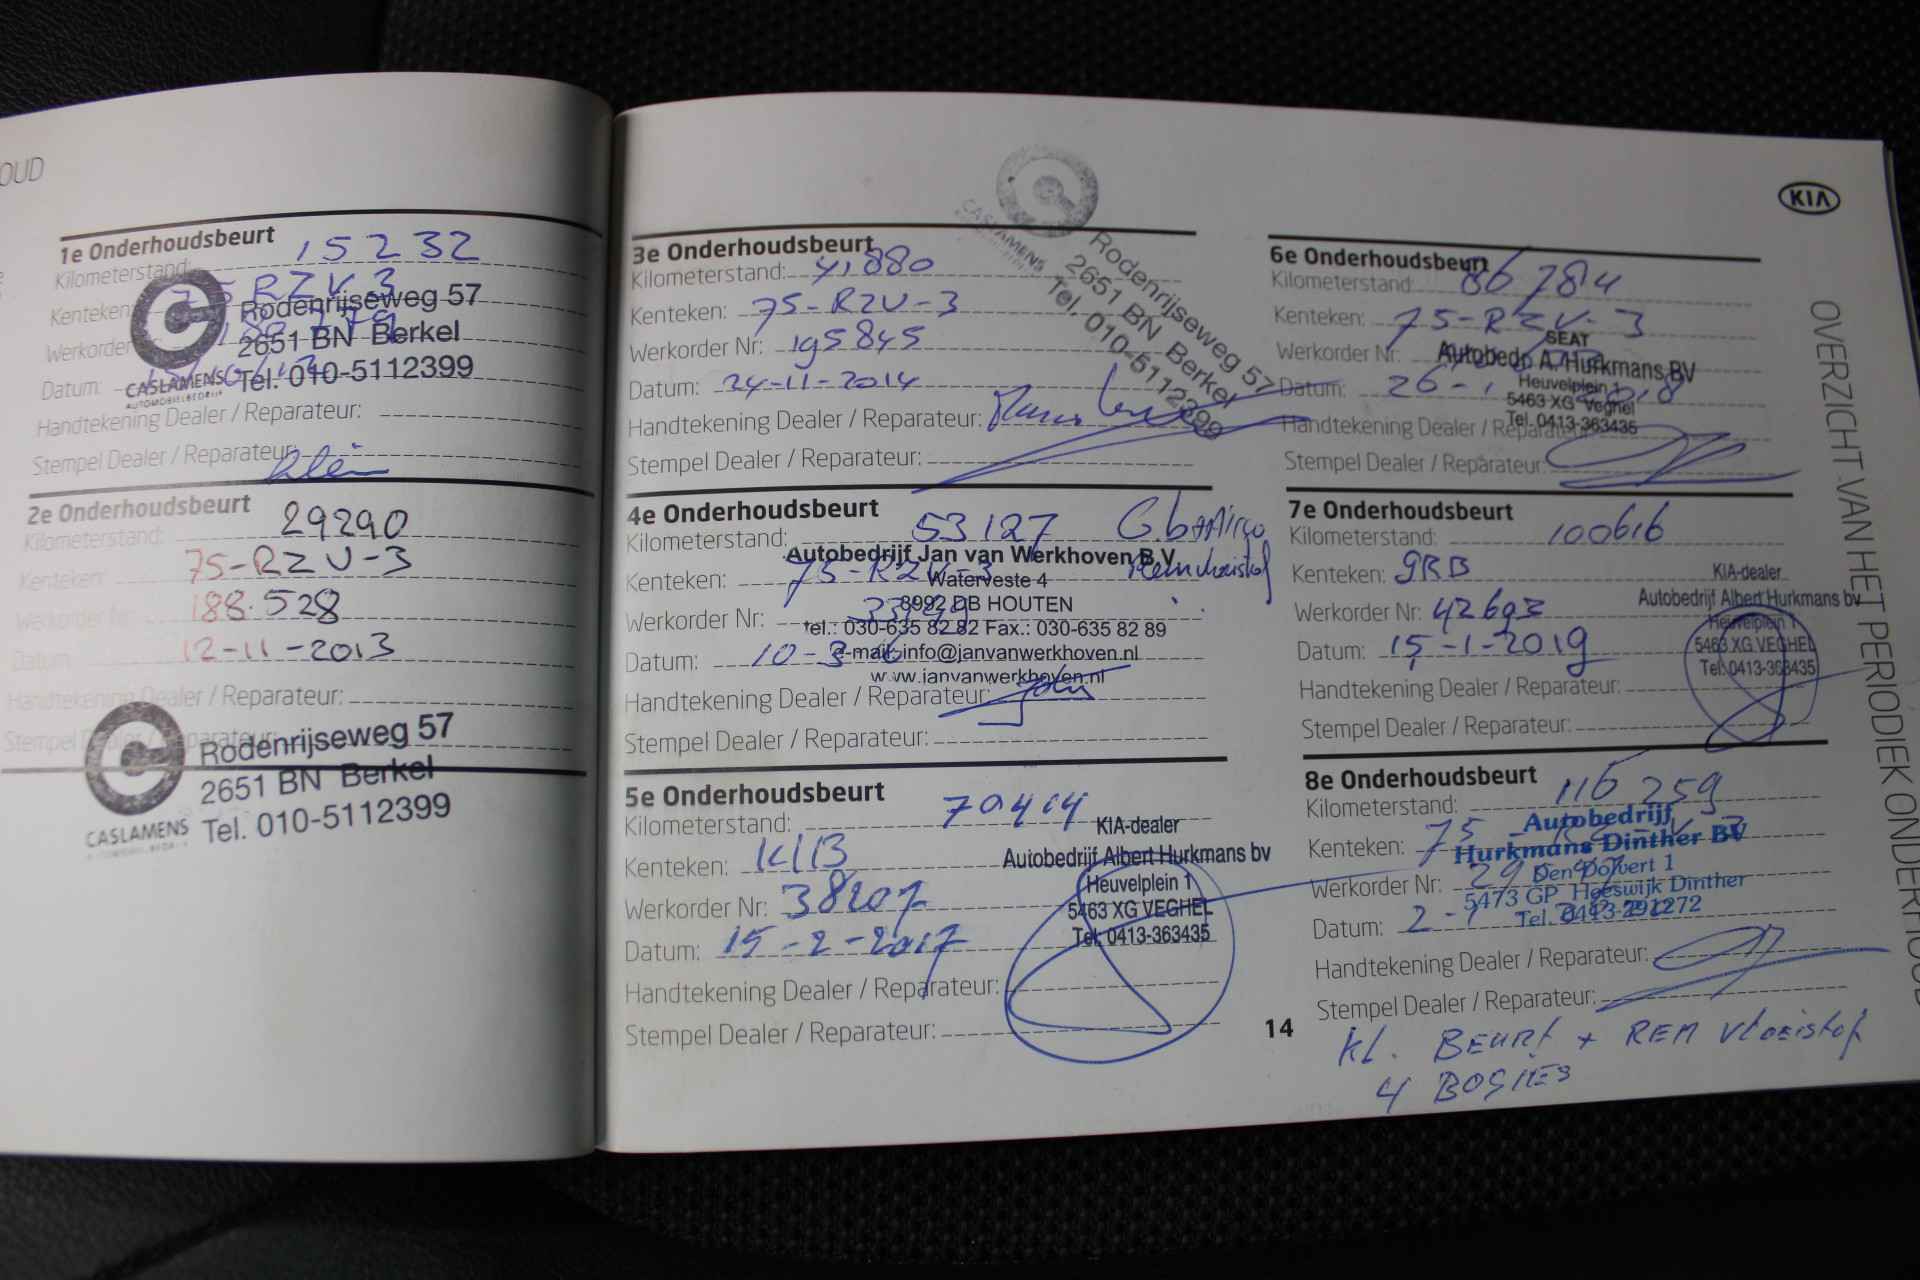 OUD
1e Onderhoudsbeurt
Kilometerstand: 15232
Kenteken: 75 RZV 3
Werkorder
Datum:
Handtekening Dealer / Reparateur:
Stempel Dealer / Reparateur:
CASLAMENS
AUTOMOBIELBEDRIJF
Rodenrijseweg 57
2651 BN Berkel
Tel. 010-5112399
2e Onderhoudsbeurt
Kilometerstand: 29290
Kenteken: 75-RZV-3
Werkorder Nr: 188.528
Datum: 12-11-2013
Handtekening Dealer / Reparateur:
Stempel Dealer / Reparateur:
CASLAMENS
AUTOMOBIELBEDRIJF
Rodenrijseweg 57
2651 BN Berkel
Tel. 010-5112399
3e Onderhoudsbeurt
Kilometerstand: 41880
Kenteken: 75-RZV-3
Werkorder Nr: 195845
Datum: 24-11-2014
Handtekening Dealer / Reparateur:
Stempel Dealer / Reparateur:
CASLAMENS
Rodenrijseweg 57
2651 BN Berkel
Tel. 010-5112399
4e Onderhoudsbeurt
Kilometerstand: 53127
Kenteken: 75-RZV-3
Werkorder Nr:
Datum: 10-3-
Handtekening Dealer / Reparateur:
Stempel Dealer / Reparateur:
Autobedrijf Jan van Werkhoven B.V.
Waterveste 4
8992 DB HOUTEN
tel.: 030-635 82 82 Fax.: 030-635 82 89
e-mail: info@janvanwerkhoven.nl
www.janvanwerkhoven.nl
G.b + Airco
Remvloeistof
5e Onderhoudsbeurt
Kilometerstand: 70414
Kenteken: KlB
Werkorder Nr: 38207
Datum: 15-2-2017
Handtekening Dealer / Reparateur:
Stempel Dealer / Reparateur:
KIA-dealer
Autobedrijf Albert Hurkmans bv
Heuvelplein 1
5463 XG VEGHEL
Tel. 0413-363435
14
KIA
6e Onderhoudsbeurt
Kilometerstand: 86784
Kenteken: 75-RZV-3
Werkorder Nr:
Datum: 26-1-2018
Handtekening Dealer / Reparateur:
Stempel Dealer / Reparateur:
SEAT
Autobedr. A. Hurkmans BV
Heuvelplein 1
5463 XG Veghel
Tel. 0413-363435
7e Onderhoudsbeurt
Kilometerstand: 100616
Kenteken: gRB
Werkorder Nr: 42693
Datum: 15-1-2019
Handtekening Dealer / Reparateur:
Stempel Dealer / Reparateur:
KIA-dealer
Autobedrijf Albert Hurkmans bv
Heuvelplein 1
5463 XG VEGHEL
Tel. 0413-363435
8e Onderhoudsbeurt
Kilometerstand: 116259
Kenteken: 75-RZ-V-3
Werkorder Nr:
Datum: 2-
Handtekening Dealer / Reparateur:
Stempel Dealer / Reparateur:
Autobedrijf
Hurkmans Dinther BV
Den Dolvert 1
5473 GP Heeswijk Dinther
Tel. 0413-291272
kl. BEURT + REM vloeistof
4 BOGIES
OVERZICHT VAN HET PERIODIEK ONDERHOUD